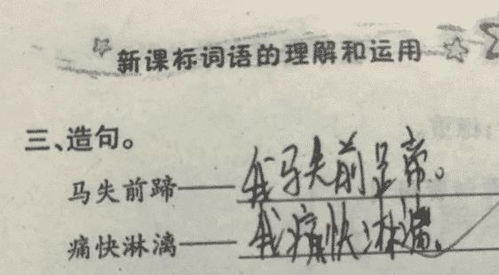 新课标词语的理解和运用
三、造句。
马失前蹄——我马失前蹄。
痛快淋漓——我痛快淋漓。